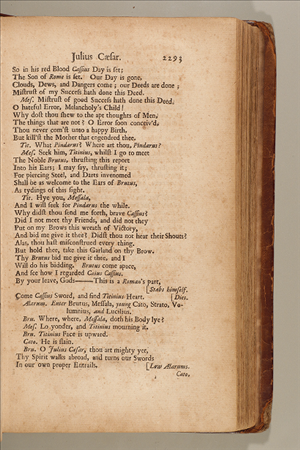 Julius Cæsar. 2293
So in his red Blood Cassius Day is set;
The Son of Rome is set. Our Day is gone,
Clouds, Dews, and Dangers come; our Deeds are done;
Mistrust of my Success hath done this Deed.
Mes. Mistrust of good Success hath done this Deed.
O hateful Error, Melancholy's Child!
Why dost thou shew to the apt thoughts of Men,
The things that are not? O Error soon conceiv'd,
Thou never com'st unto a happy Birth,
But kill'st the Mother that engendred thee.
Tit. What Pindarus? Where art thou, Pindarus?
Mes. Seek him, Titinius, whilst I go to meet
The Noble Brutus, thrusting this report
Into his Ears; I may say, thrusting it;
For piercing Steel, and Darts invenomed
Shall be as welcome to the Ears of Brutus,
As tydings of this sight.
Tit. Hye you, Messala,
And I will seek for Pindarus the while.
Why didst thou send me forth, brave Cassius?
Did I not meet thy Friends, and did not they
Put on my Brows this wreath of Victory,
And bid me give it thee? Didst thou not hear their Shouts?
Alas, thou hast misconstrued every thing.
But hold thee, take this Garland on thy Brow.
Thy Brutus bid me give it thee, and I
Will do his bidding. Brutus come apace,
And see how I regarded Caius Cassius.
By your leave, Gods——This is a Roman's part,
[Stabs himself.
Come Cassius Sword, and find Titinius Heart. [Dies.
Alarum. Enter Brutus, Messala, young Cato, Strato, Vo-
lumnius, and Lucilius.
Bru. Where, where, Messala, doth his Body lye?
Mes. Lo yonder, and Titinius mourning it.
Bru. Titinius Face is upward.
Cato. He is slain.
Bru. O Julius Cæsar, thou art mighty yet,
Thy Spirit walks abroad, and turns our Swords
In our own proper Entrails. [Low Alarums.
Cato,